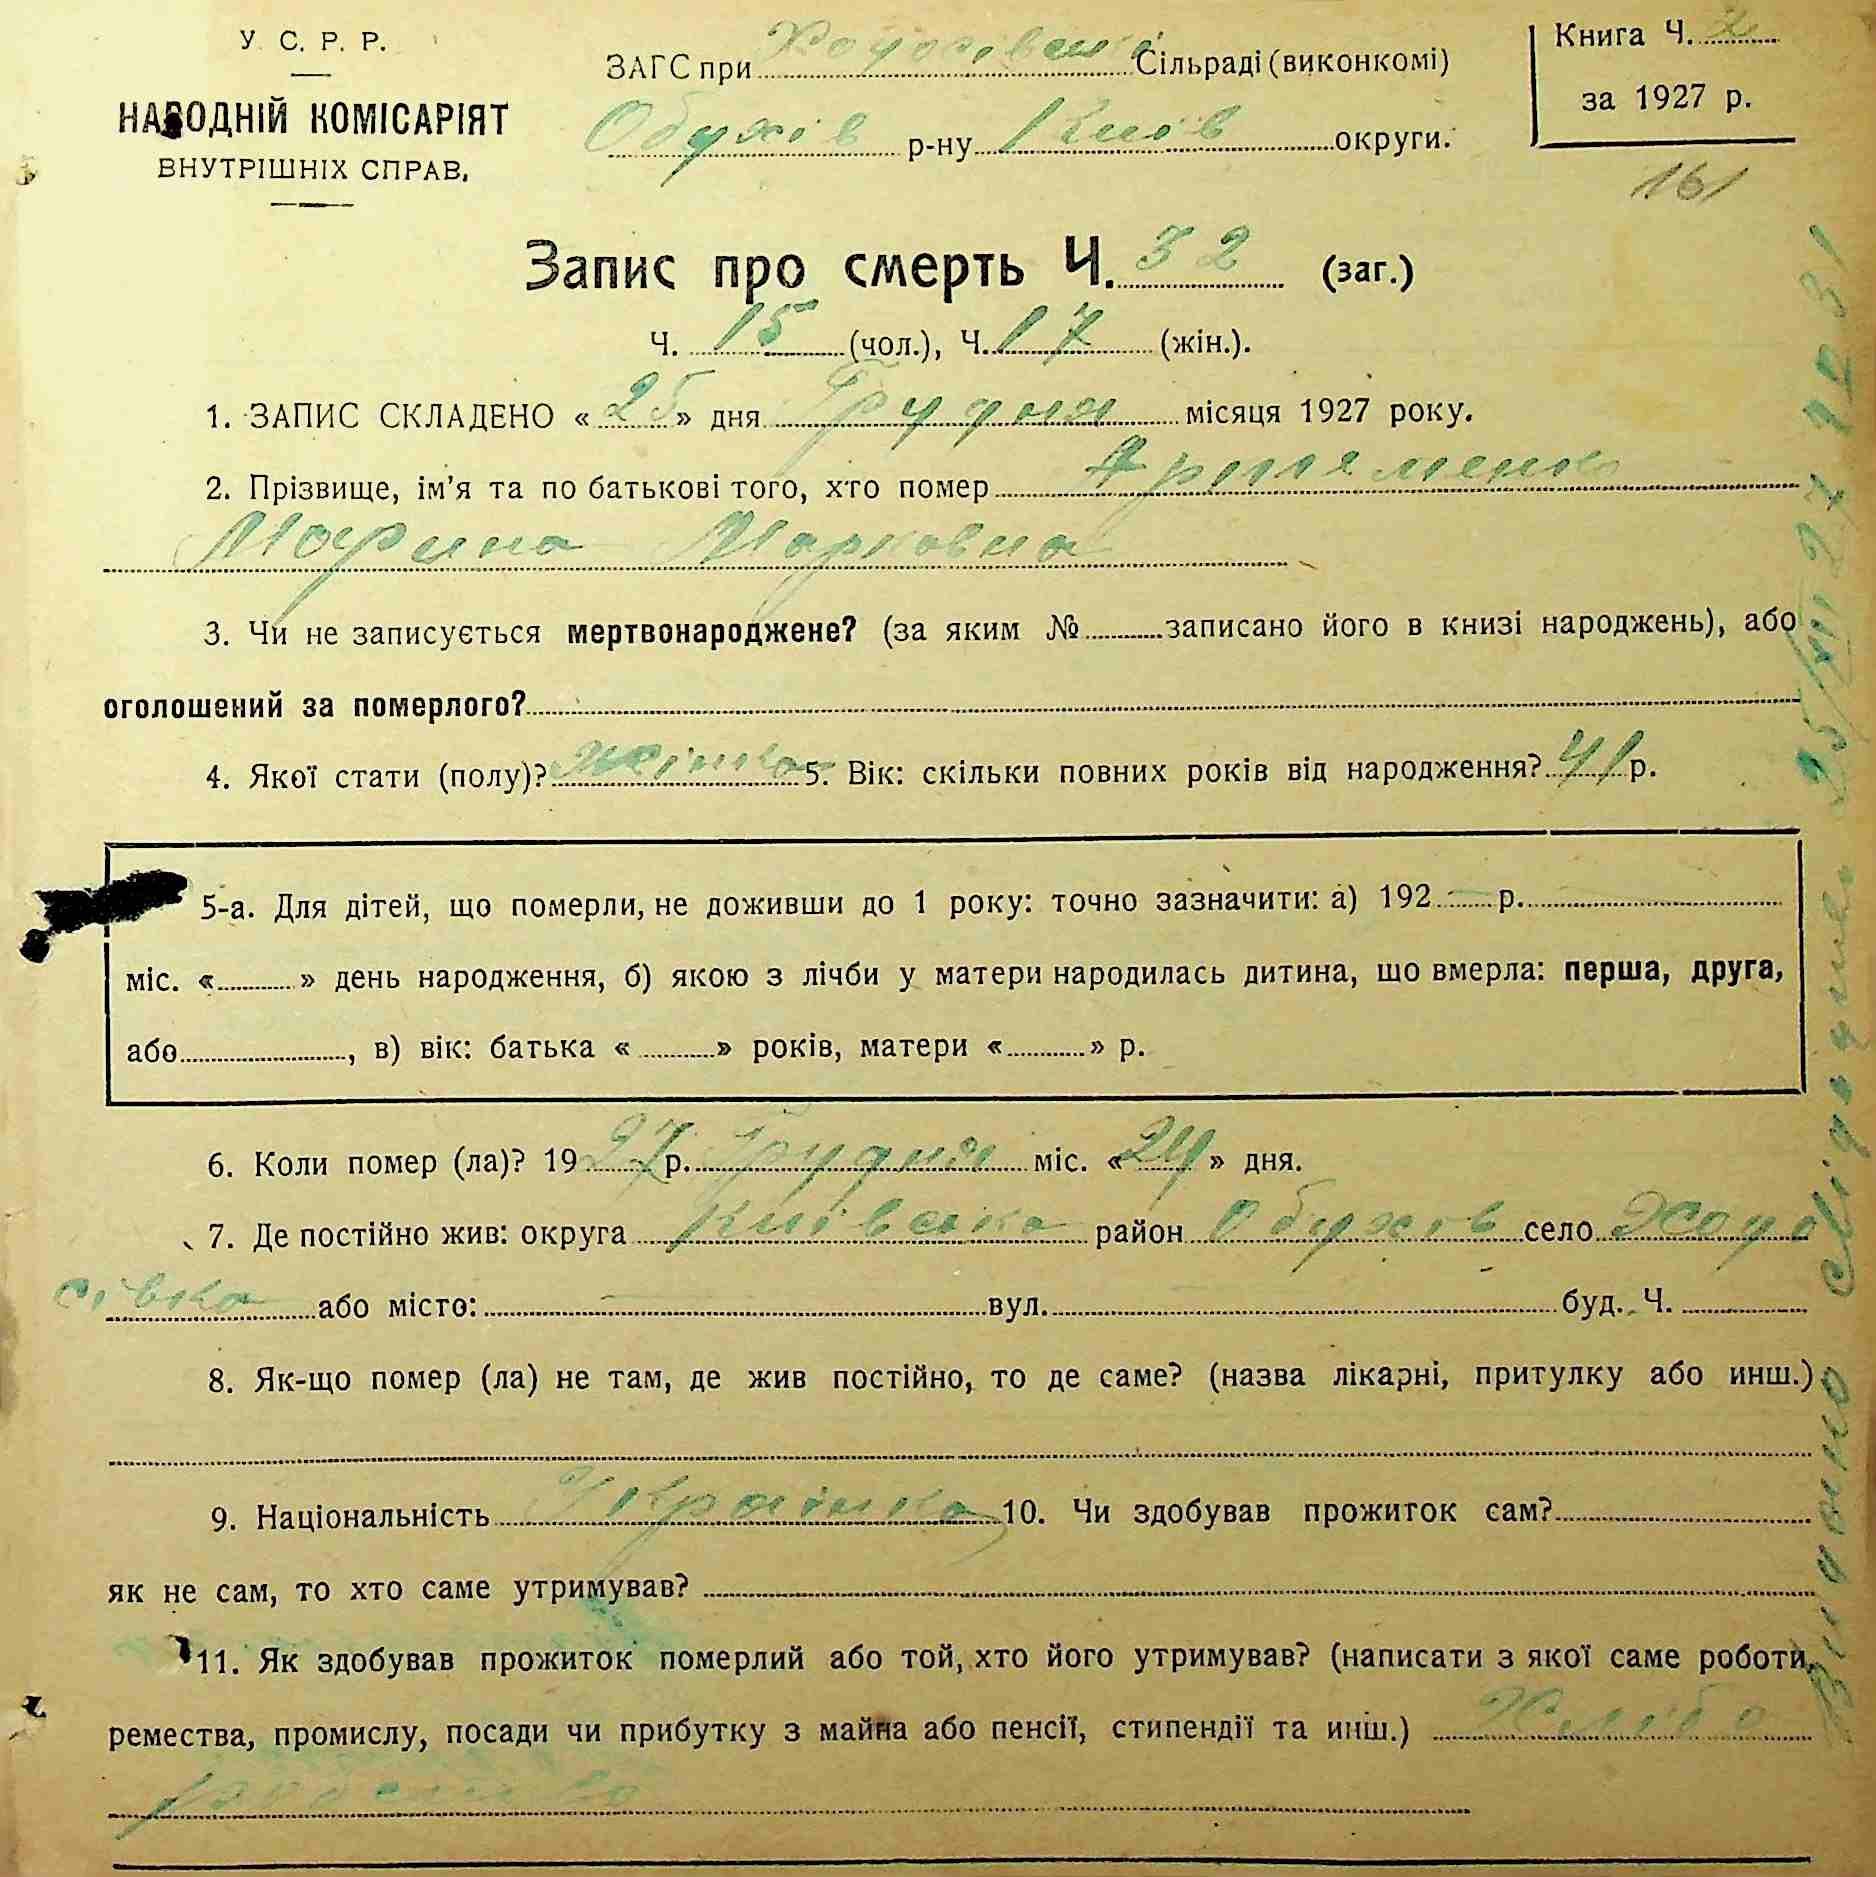 У. С. Р. Р.
НАРОДНІЙ КОМІСАРІЯТ
ВНУТРІШНІХ СПРАВ.
ЗАГС при Ходосівські Сільраді (виконкомі)
Обухів р-ну Київ округи.
Книга Ч.
за 1927 р.
161
Запис про смерть Ч. 32 (заг.)
Ч. 15 (чол.), Ч. 17 (жін.).
1. ЗАПИС СКЛАДЕНО «25» дня Грудня місяця 1927 року.
2. Прізвище, ім'я та по батькові того, хто помер Артеменко
Марина Марковна
3. Чи не записується мертвонароджене? (за яким № записано його в книзі народжень), або
оголошений за померлого?
4. Якої стати (полу)? жінка 5. Вік: скільки повних років від народження? 41 р.
5-а. Для дітей, що померли, не доживши до 1 року: точно зазначити: а) 192 р.
міс. « » день народження, б) якою з лічби у матери народилась дитина, що вмерла: перша, друга,
або , в) вік: батька « » років, матери « » р.
6. Коли помер (ла)? 1927 р. Грудня міс. «24» дня.
7. Де постійно жив: округа Київська район Обухів село Ходо
сівка або місто: вул. буд. Ч.
8. Як-що помер (ла) не там, де жив постійно, то де саме? (назва лікарні, притулку або инш.)
9. Національність Українка 10. Чи здобував прожиток сам?
як не сам, то хто саме утримував?
11. Як здобував прожиток померлий або той, хто його утримував? (написати з якої саме роботи,
ремества, промислу, посади чи прибутку з майна або пенсії, стипендії та инш.) Хлібо
робство
Видано